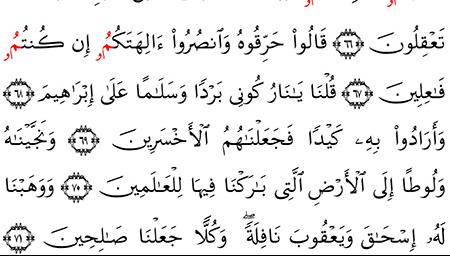 تَعۡقِلُونَ ۝٦٦ قَالُواْ حَرِّقُوهُ وَٱنصُرُوٓاْ ءَالِهَتَكُمُۥٓ إِن كُنتُمُۥ
فَٰعِلِينَ ۝٦٧ قُلۡنَا يَٰنَارُ كُونِي بَرۡدٗا وَسَلَٰمًا عَلَىٰٓ إِبۡرَٰهِيمَ ۝٦٨
وَأَرَادُواْ بِهِۦ كَيۡدٗا فَجَعَلۡنَٰهُمُ ٱلۡأَخۡسَرِينَ ۝٦٩ وَنَجَّيۡنَٰهُ
وَلُوطًا إِلَى ٱلۡأَرۡضِ ٱلَّتِي بَٰرَكۡنَا فِيهَا لِلۡعَٰلَمِينَ ۝٧٠ وَوَهَبۡنَا
لَهُۥٓ إِسۡحَٰقَ وَيَعۡقُوبَ نَافِلَةٗۖ وَكُلّٗا جَعَلۡنَا صَٰلِحِينَ ۝٧١